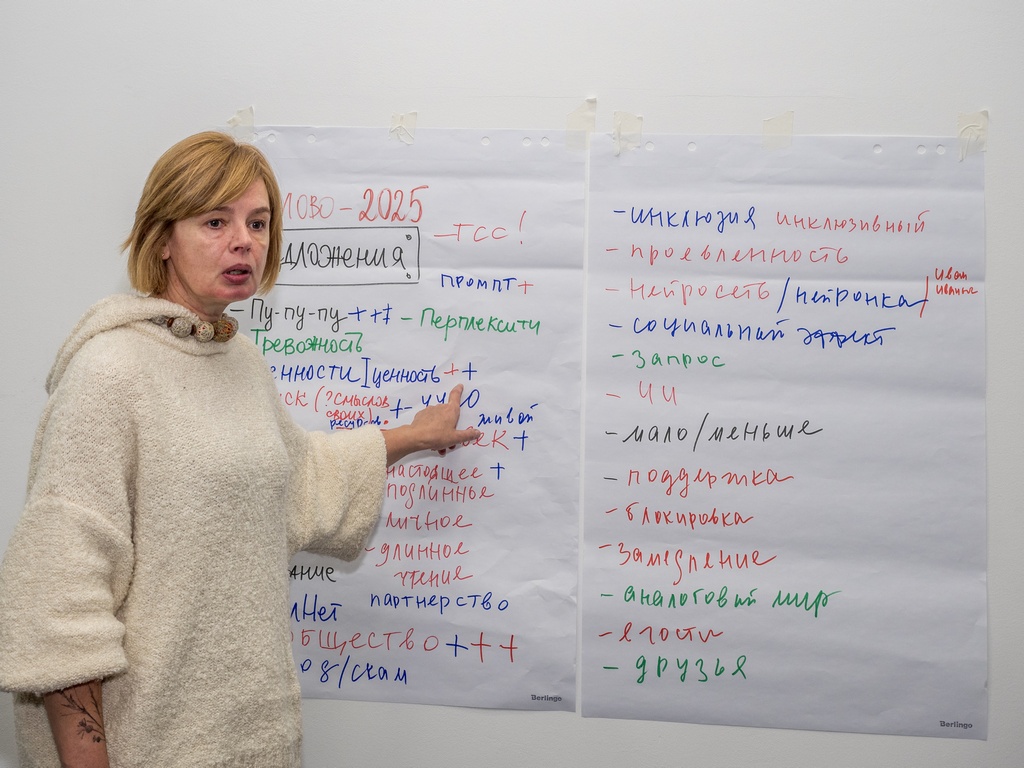 ЛОВО-2025
- ТСС!
ДЛОЖЕНИЯ
ПРОМПТ +
- Пу-пу-пу +++ - Перплексити
Тревожность
ЕННОСТИ] ценность ++
СК (?смыслов
своих)
ресурсов
живой
ЕК +
настоящее +
подлинное
личное
- длинное
чтение
АНИЕ
лНет партнерство
ОБЩЕСТВО +++
од/скам
Berlingo
- инклюзия инклюзивный
- проевленность
- Нейросеть /нейронка/ Иван
Иваныч
- социальный эффект
- Запрос
- ЧИ
- мало/меньше
- поддержка
- блокировка
- Замедление
- аналоговый мир
- егости
- друзья
Berlingo